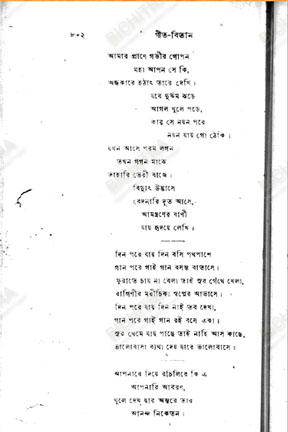 ৮০২
গীত-বিতান
আমার প্রাণে গভীর গোপন
মহা আপন সে কি,
অন্ধকারে হঠাৎ তারে দেখি।
যবে দুর্দ্দম ঝড়ে
আগল খুলে পড়ে,
কার সে নয়ন পরে
নয়ন যায় গো ঠেকি।
যখন আসে পরম লগন
তখন গগন মাঝে
তাহারি ভেরী বাজে।
বিদ্যুৎ উদ্ভাসে
বেদনারি দূত আসে,
আমন্ত্রণের বাণী
যায় হৃদয়ে লেখি।
দিন পরে যায় দিন বসি পথপাশে
গান পরে গাই গান বসন্ত বাতাসে।
ফুরাতে চায় না বেলা তাই সুর গেঁথে খেলা,
রাগিণীর মরীচিকা স্বপ্নের আভাসে।
দিন পরে যায় দিন নাই তব দেখা,
গান পরে গাই গান রই বসে একা।
সুর থেমে যায় পাছে তাই নাহি আস কাছে,
ভালোবাসা ব্যথা দেয় যারে ভালোবাসে।
আপনারে দিয়ে রচিলিরে কি এ
আপনারি আবরণ,
খুলে দেখ্ দ্বার অন্তরে তার
আনন্দ নিকেতন।